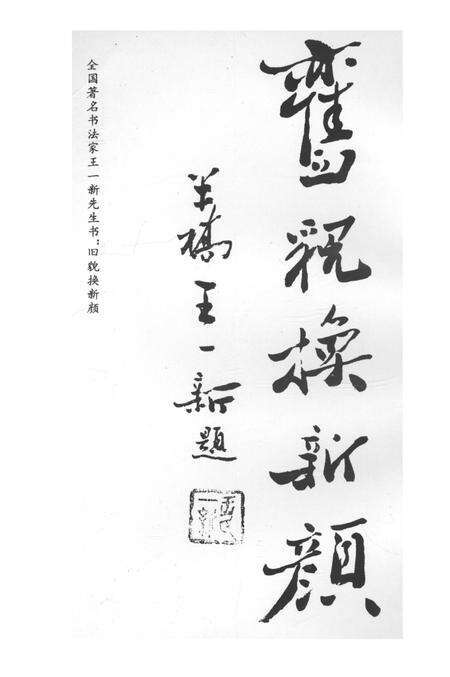 舊貌換新顔
王一新題
全国著名书法家王一新先生书：旧貌换新颜